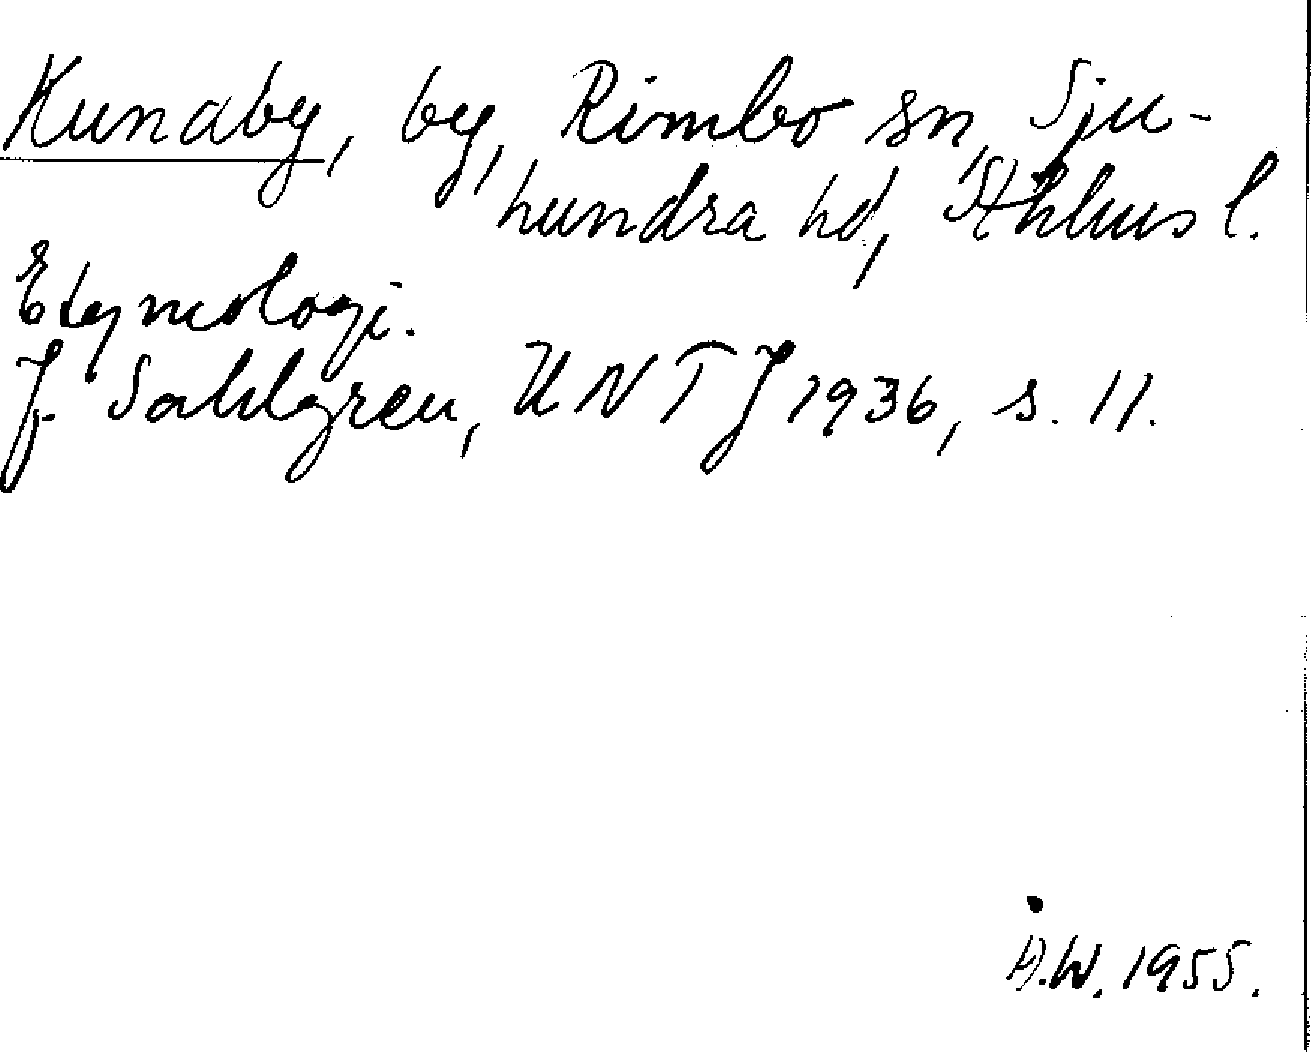 Kunaby, by, Rimbo sn, Sju-
hundra hd, Sthlms l.
Etymologi.
J. Sahlgren, UNTJ 1936, s. 11.
A.W. 1955.